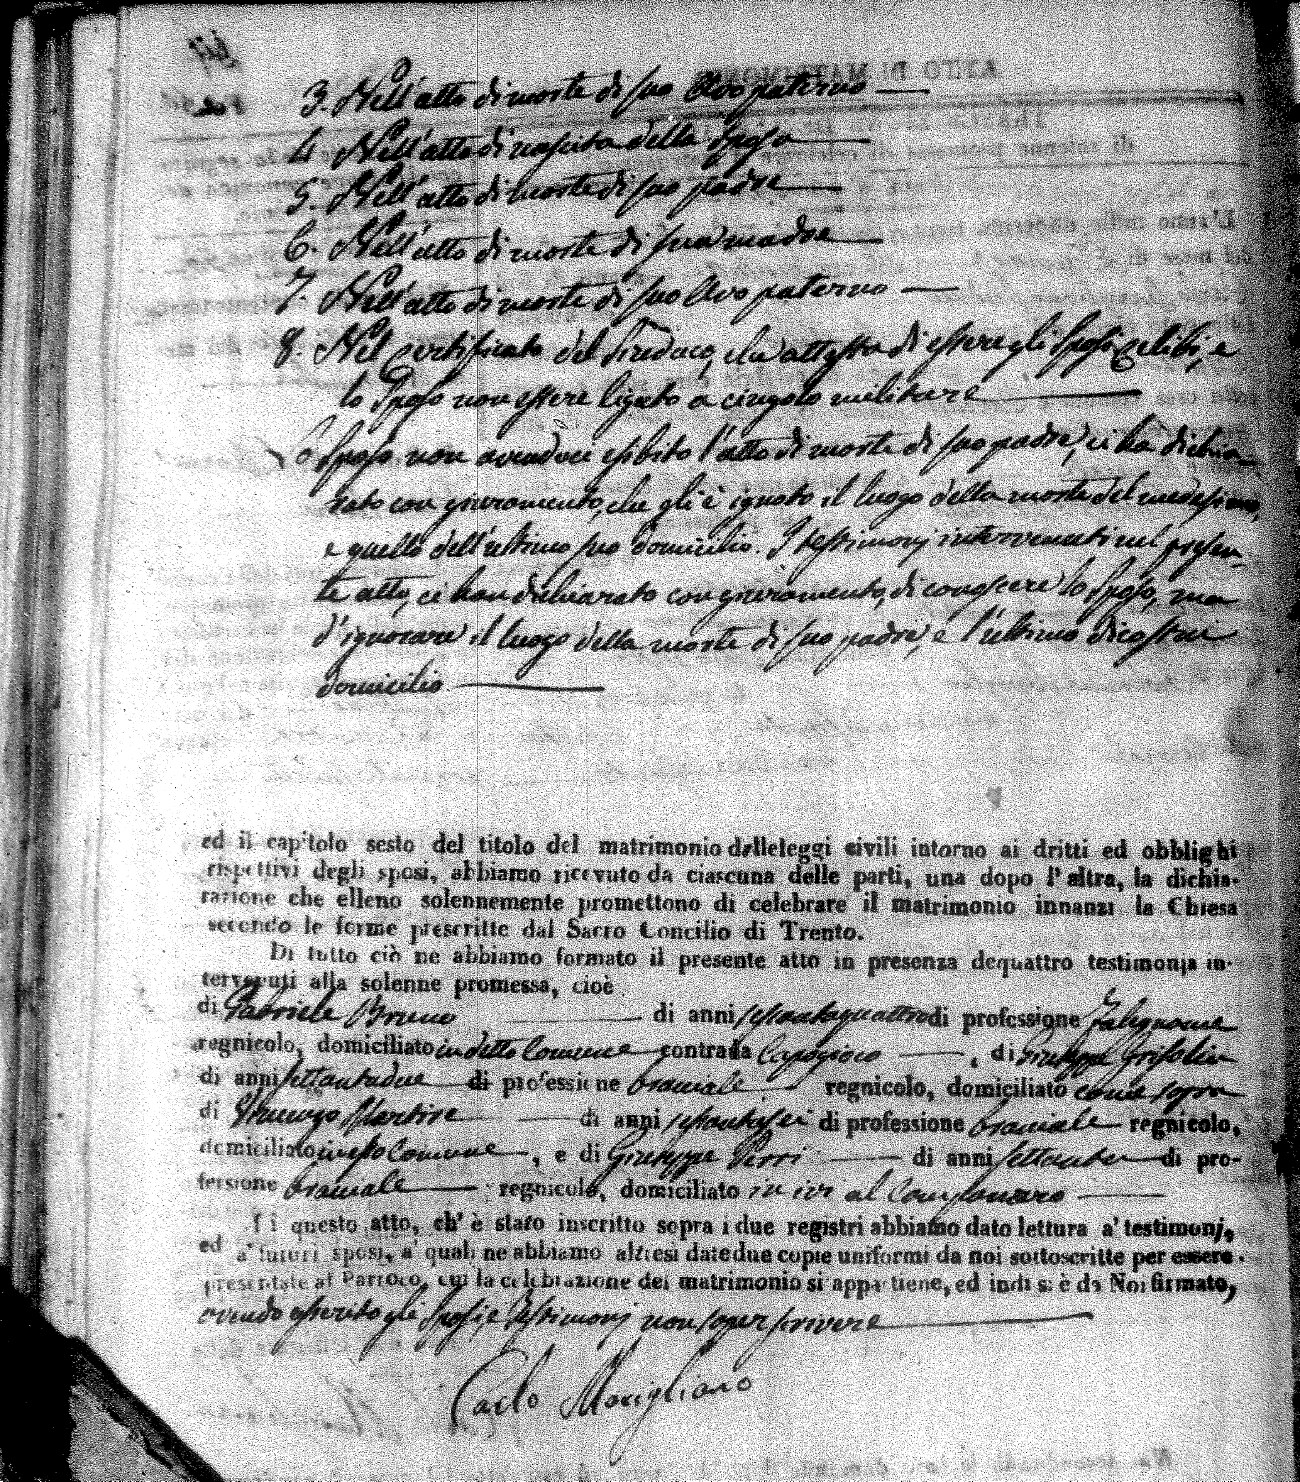 3. Nell'atto di morte di suo Avo paterno
4. Nell'atto di nascita della Sposa
5. Nell'atto di morte di suo padre
6. Nell'atto di morte di sua madre
7. Nell'atto di morte di suo Avo paterno
8. Nel certificato del Sindaco, che attesta di essere gli Sposi celibi, e
lo Sposo non essere ligato a cingolo militare
Lo Sposo non avendoci esibito l'atto di morte di suo padre, ci ha dichia-
rato con giuramento, che gli è ignoto il luogo della morte del medesimo,
e quello dell'ultimo suo domicilio. I testimonj intervenuti nel presen-
te atto, ci han dichiarato con giuramento, di conoscere lo Sposo, ma
d'ignorare il luogo della morte di suo padre, e l'ultimo di costui
domicilio
ed il capitolo sesto del titolo del matrimonio delleleggi civili intorno ai dritti ed obblighi
rispettivi degli sposi, abbiamo ricevuto da ciascuna delle parti, una dopo l'altra, la dichia-
razione che elleno solennemente promettono di celebrare il matrimonio innanzi la Chiesa
secondo le forme prescritte dal Sacro Concilio di Trento.
Di tutto ciò ne abbiamo formato il presente atto in presenza dequattro testimonja in-
tervenuti alla solenne promessa, cioè
di Gabriele Bruno di anni settantaquattro di professione Falegname
regnicolo, domiciliato in detto Comune contrada Capogioco, di Giuseppe Grisolia
di anni settantadue di professione bracciale regnicolo, domiciliato come sopra
di Vincenzo Martire di anni settantasei di professione bracciale regnicolo,
domiciliato in esso Comune, e di Giuseppe Perri di anni settanta di pro-
fessione bracciale regnicolo, domiciliato in ivi al
Di questo atto, ch'è stato inscritto sopra i due registri abbiamo dato lettura a' testimonj,
ed a' futuri sposi, a' quali ne abbiamo altresi date due copie uniformi da noi sottoscritte per essere
presentate al Parroco, cui la celebrazione del matrimonio si appartiene, ed indi s: è da Noi firmato,
avendo asserito gli Sposi, e Testimonj non saper scrivere
Carlo Morigliano